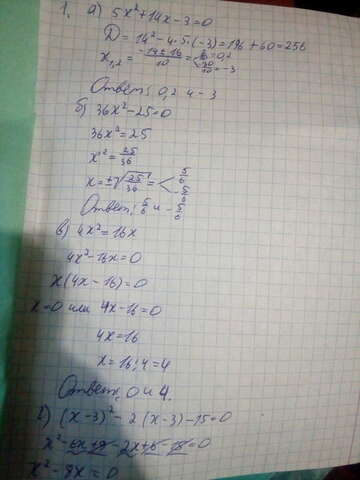 1. а) 5x²+14x-3=0
D=14²-4·5·(-3)=196+60=256
x₁,₂=(-14±16)/10= 2/10=0,2
-30/10=-3
Ответ: 0,2 и -3
б) 36x²-25=0
36x²=25
x²=25/36
x=±√25/36= 5/6
-5/6
Ответ: 5/6 и -5/6
в) 4x²=16x
4x²-16x=0
x(4x-16)=0
x=0 или 4x-16=0
4x=16
x=16:4=4
Ответ: 0 и 4.
г) (x-3)²-2(x-3)-15=0
x²-6x+9-2x+6-15=0
x²-8x=0